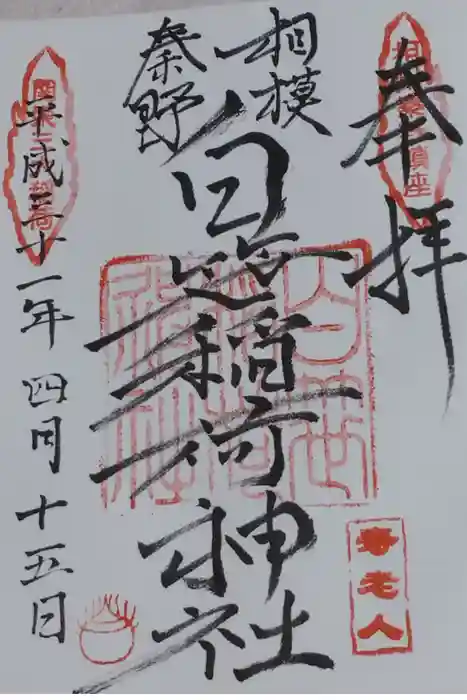 奉拝
相模
秦野
白笹稲荷神社
平成三十一年四月十五日
寿老人